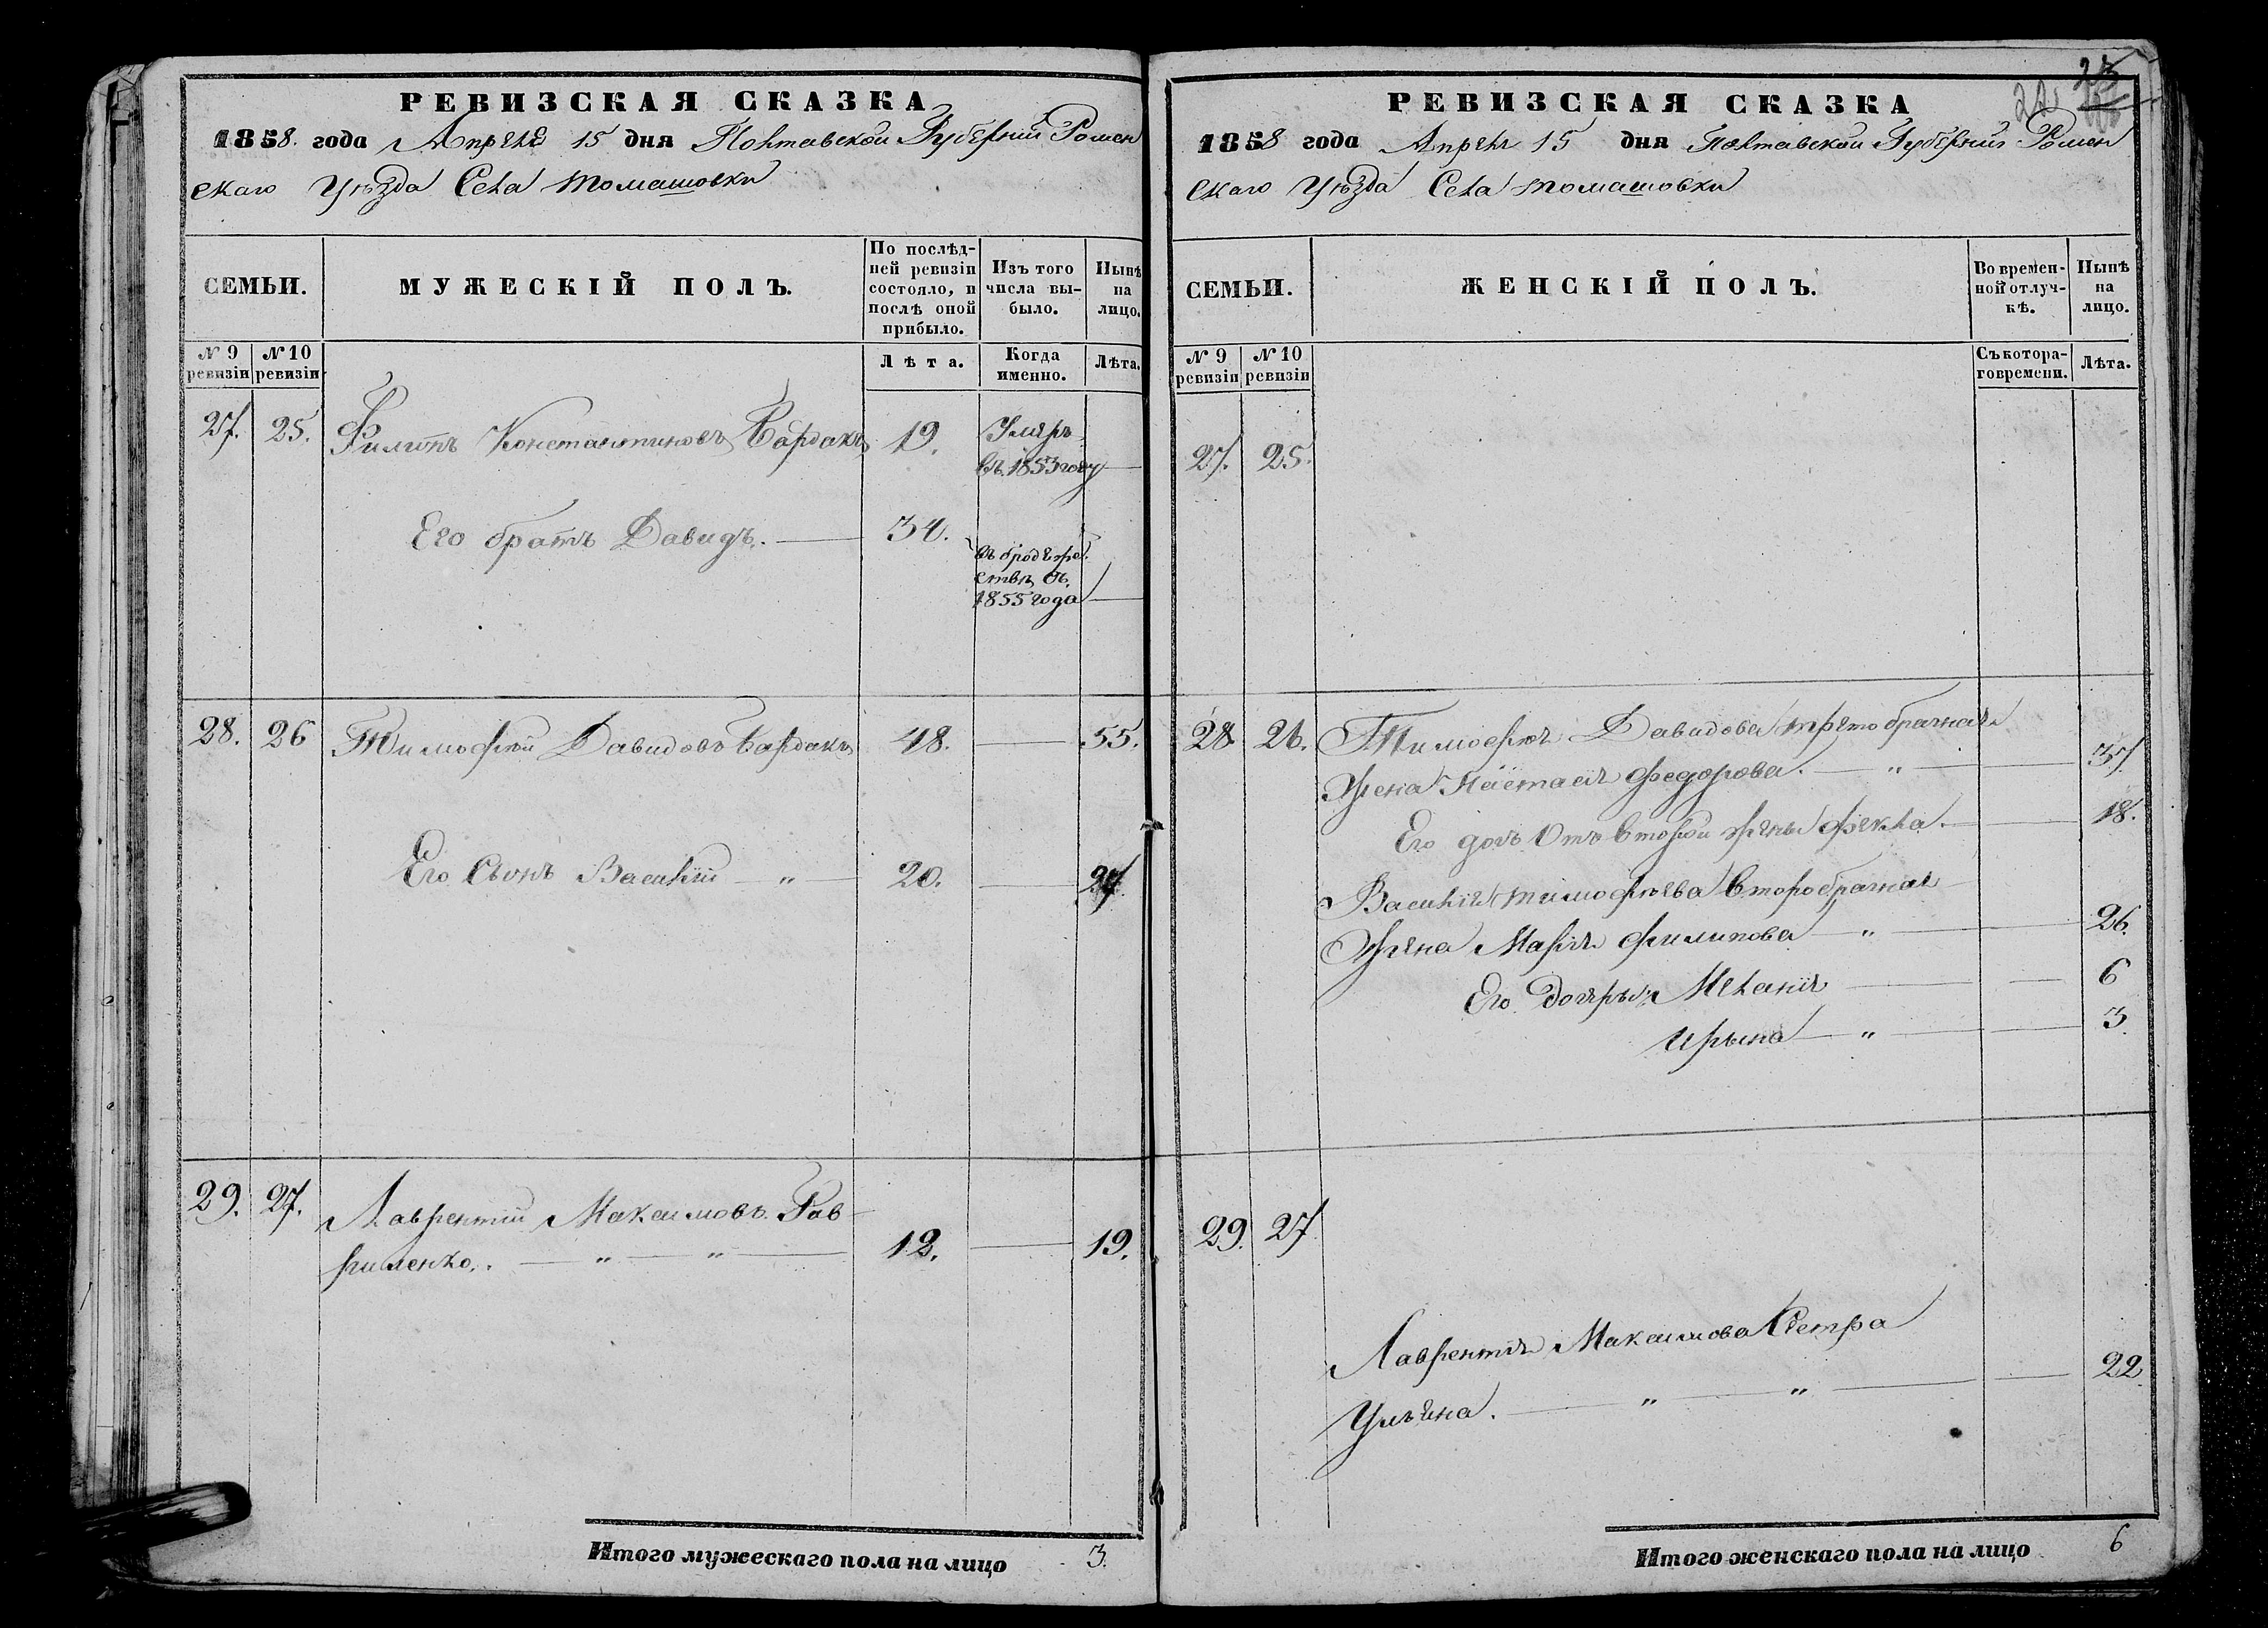 РЕВИЗСКАЯ СКАЗКА
1858. года Апреля 15 дня Полтавской Губерніи Ромен
скаго Уѣзда Села Томашовки
СЕМЬИ.
МУЖЕСКІЙ ПОЛЪ.
По послѣд-
ней ревизіи
состояло, и
послѣ оной
прибыло.
Изъ того
числа вы-
было.
Нынѣ
на
лицо.
№ 9
ревизіи
№ 10
ревизіи
Лѣта.
Когда
именно.
Лѣта.
27. 25. Филипъ Константиновъ Бардакъ 19. Умеръ
въ 1853 году
Его братъ Давидъ. 34.
въ бродяже
ствѣ съ
1855 года
28. 26 Тимофѣй Давидовъ Бардакъ 48. 55.
Его Сынъ Василій " 20. 27.
29. 27. Лаврентій Максимовъ Гав
риленко. " " 12. 19.
Итого мужескаго пола на лицо 3.
23
22
РЕВИЗСКАЯ СКАЗКА
1858 года Апреля 15 дня Полтавской Губерніи Ромен
скаго Уѣзда Села Томашовки
СЕМЬИ.
ЖЕНСКІЙ ПОЛЪ.
Во времен-
ной отлуч-
кѣ.
Нынѣ
на
лицо.
№ 9
ревизіи
№ 10
ревизіи
Съ котора-
го времени.
Лѣта.
27. 25.
28. 26. Тимофея Давидова третобрачная
Жена Настасія Федорова. " 37.
Его дочь Отъ второй жены Фекла. 18.
Василія Тимофѣева второбрачная
Жена Марія Филипова " 26.
Его Дочеры: Меланія 6
Ирына " 3.
29. 27
Лаврентія Максимова Сестра
Ульяна. " " 22.
Итого женскаго пола на лицо 6